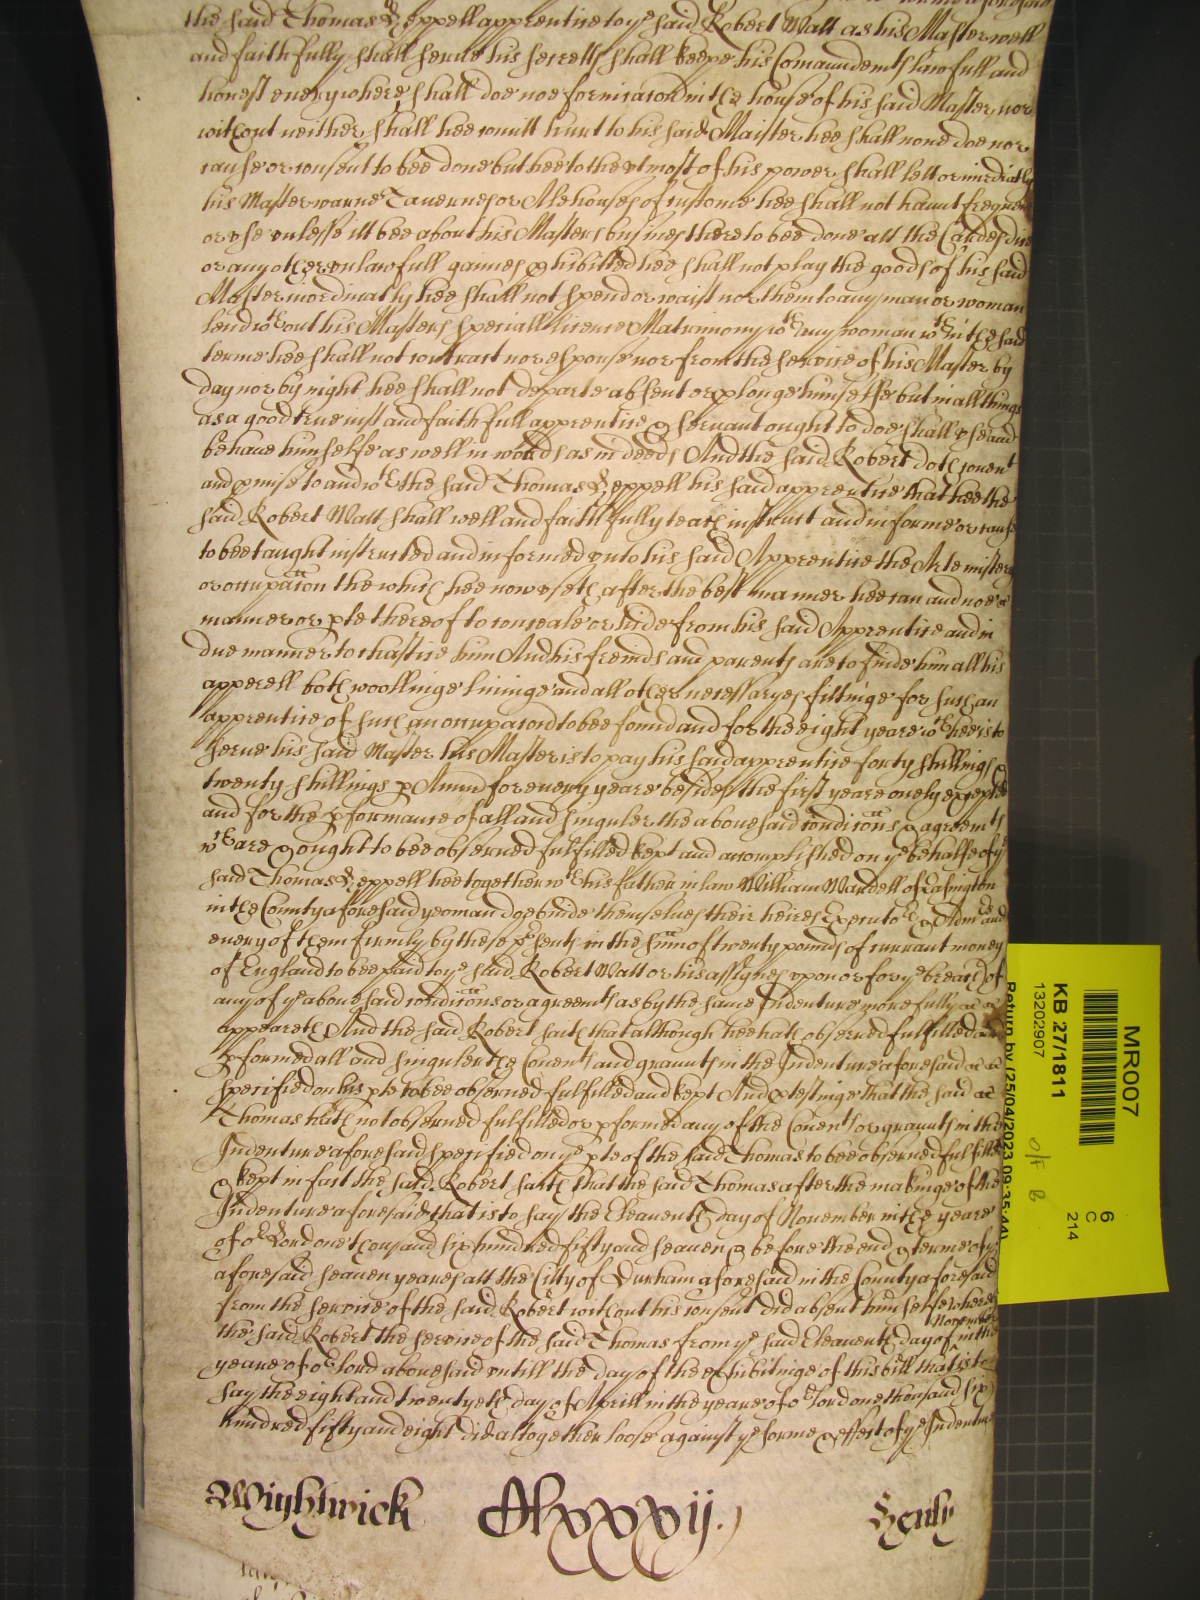 the said Thomas Leppell apprentice to ye said Robert Watt as his Master well
and faithfully shall serue his secretts shall keepe his Comaundemts lawfull and
honest euerywhere shall doe noe fornicacon in the house of his said Master nor
without neither shall hee comitt hurt to his said Maister hee shall none doe nor
cause or consent to bee done but hee to the vtmost of his power shall lett or imediatly
his Master warne Tauernes or Alehouses of custome hee shall not haunt frequent
or vse vnlesse itt bee about his Masters busines there to bee done att the Cardes dice
or any other vnlawfull games phibitted hee shall not play the goods of his said
Master inordinatly hee shall not spend or waist nor them to any man or woman
lend wthout his Masters speciall licence Matrimony wth any woman wthin the said
terme hee shall not contract nor espouse nor from the service of his Master by
day nor by night hee shall not departe absent or plonge himselfe but in all things
as a good true iust and faithfull apprentice & seruant ought to doe shall vse and
behaue himselfe as well in words as in deeds And the said Robert doth couent
and pmise to and wth the said Thomas Leppell his said apprentice that hee the
said Robert Watt shall well and faithfully teach instruct and informe or cause
to bee taught instructed and informed vnto his said Apprentice the Arte mistery
or occupacon the which hee now vseth after the best manner hee can and noe
manner or pte thereof to conceale or hide from his said Apprentice and in
due manner to chastise him And his freinds and parents are to finde him all his
apperell both woollinge lininge and all other necessaryes fittinge for such an
apprentice of such an occupacon to bee found and for the eight yeare wch hee is to
serue his said Master his Master is to pay his said apprentice forty shillings &
twenty shillings p Annu for euery yeare besides the first yeare onely excepted
and for the pformance of all and singuler the abouesaid condicons & agreemts
wch are & ought to bee obserued fulfilled kept and accomplished on ye behalfe of ye
said Thomas Leppell hee together wth his father in law William Wardell of Easington
in the County aforesaid yeoman doe binde themselues their heires Executors & Admrs and
euery of them firmly by these psents in the sum of twenty pounds of currant money
of England to bee paid to ye said Robert Watt or his assignes vpon or for ye breach of
any of ye abouesaid condicons or agreemts as by the same Indenture more fully
appeareth And the said Robert saith that although hee hath obserued fulfilled and
pformed all and singuler the Couents and graunts in the Indenture aforesaid
specified on his pte to bee obserued fulfilled and kept And ptestinge that the said
Thomas hath not obserued fulfilled or pformed any of the Couents or graunts in the
Indenture aforesaid specified on ye pte of the said Thomas to bee obserued fulfilled
& kept in fact the said Robert saith that the said Thomas after the makinge of the
Indenture aforesaid that is to say the Eleauenth day of November in the yeare
of or Lord one thousand six hundred fifty and seauen & before the end & terme of ye
aforesaid seauen yeares att the City of Durham aforesaid in the County aforesaid
from the service of the said Robert without his consent did absent himselfe whereby
the said Robert the service of the said Thomas from ye said Eleauenth day of November in the
yeare of or Lord abouesaid vntill the day of the exhibitinge of this bill that is to
say the eight and twentyeth day of Aprill in the yeare of or Lord one thousand six
hundred fifty and eight did altogether loose against ye forme & effect of ye Indenture
Wightwick
Mlxxxvij.
Henly
MR007
KB 27/1811
13202907
Return by (25/04/2023 09:35:44)
6
C
214
O/F B